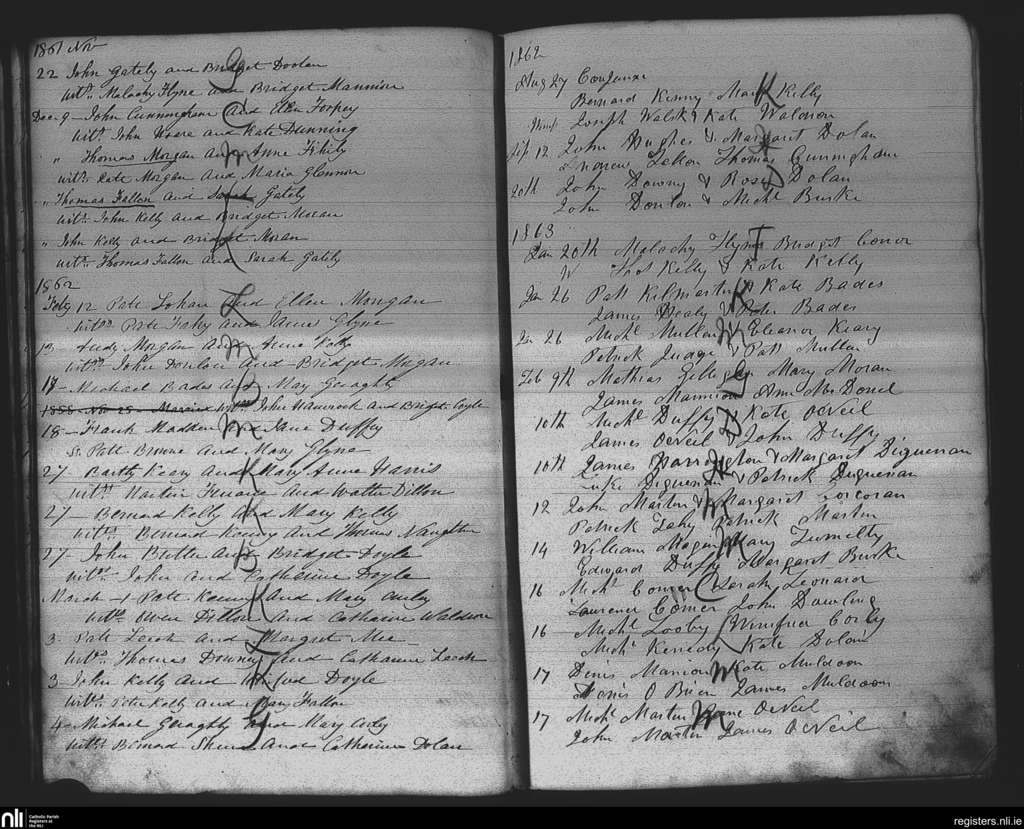 1861 Nov
22 John Gately and Bridget Doolan
witns. Malachy Flyne and Bridget Mannion
Dec 9 - John Cunningham and Ellen
witns. John Keare and Kate Dunning
" Thomas Morgan and Anne
witns. Kate Morgan and Maria Glennon
" Thomas Fallon and Sarah Gately
witns. John Kelly and Bridget Moran
" John Kelly and Bridget Moran
witns. Thomas Fallon and Sarah Gately
1862
Feby 12 Pate Lohan and Ellen Mongan
witns. Pate Fahy and James Glyne
13 Andy Morgan and Anne Kelly
witns. John Donlon and Bridget Mogan
17 - Michael Bades and May Geraghty
1858 Nov 25 - Married witns. John Hancock and Bridget Coyle
18 - Frank Madden and Jane Duffy
Pate Browne and Mary Glyne
27 - Bartly Keary and Mary Anne Harris
witns. Martin and Walter Dillon
27 - Bernard Kelly and Mary Kelly
witns. Bernard Keaney and Thomas Naughton
27 - John Butler and Bridget Doyle
witns. John and Catharine Doyle
March - 1 Pate and Mary
witns. Owen Dillon and Catharine Waldron
3 Pate Leech and Margret Mee
witns. Thomas Downey and Catharine Leech
3 John Kelly and Doyle
witns. Peter Kelly and Mary Fallon
4 - Michael Geraghty and Mary
witns. Bernard and Catharine Dolan
1862
Aug 27
Bernard Kenny Mark Kelly
Joseph Walsh & Kate Waldron
Sep 12 John Hughes & Margaret Dolan
Andrew Thomas Cunningham
20th John Downy & Rose Dolan
John Donlon & Michl Burke
1863
Jan 20th Malachy Flyn Bridget Conor
W Thos Kelly & Kate Kelly
Jan 26 Patt Kilmartin & Kate Bades
James Healy & Peter Bades
Jan 26 Michl Mullen Eleanor Keary
Patrick Judge & Patt Mullen
Feb 9th Mathias Mary Moran
James Mannion & Ann McDonel
10th Michl Duffy Kate O'Neil
James O'Neil & John Duffy
10th James & Margaret Diguenan
Luke Diguenan & Patrick Diguenan
12 John Martin & Margaret Corcoran
Patrick Fahy Patrick Martin
14 William Magan Mary Tumelty
Edward Duffy Margaret Burke
16 Michl Comer Sarah Leonard
Laurence Comer John Dowling
16 Michl Looby Winifred Corly
Michl Kennedy Kate Dolan
17 Denis Mannion Kate Muldoon
Denis O Brien James Muldoon
17 Michl Martin Anne O'Neil
John Martin James O'Neil
nli
Catholic Parish
Registers at
the NLI
registers.nli.ie